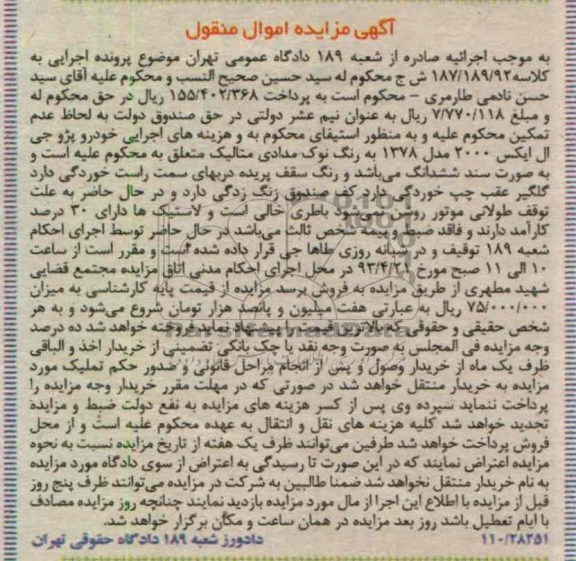 آگهی مزایده اموال منقول
به موجب اجرائیه صادره از شعبه ۱۸۹ دادگاه عمومی تهران موضوع پرونده اجرایی به
کلاسه۱۸۷/۱۸۹/۹۲ ش ج محکوم له سید حسین صحیح النسب و محکوم علیه آقای سید
حسن نادمی طارمری – محکوم است به پرداخت ۱۵۵/۴۰۲/۳۶۸ ریال در حق محکوم له
و مبلغ ۷/۷۷۰/۱۱۸ ریال به عنوان نیم عشر دولتی در حق صندوق دولت به لحاظ عدم
تمکین محکوم علیه و به منظور استیفای محکوم به و هزینه های اجرایی خودرو پژو جی
ال ایکس ۲۰۰۰ مدل ۱۳۷۸ به رنگ نوک مدادی متالیک متعلق به محکوم علیه است و
به صورت سند ششدانگ می‌باشد و رنگ سقف پریده دربهای سمت راست خوردگی دارد
گلگیر عقب چپ خوردگی دارد کف صندوق زنگ زدگی دارد و در حال حاضر به علت
توقف طولانی موتور روشن نمی‌شود باطری خالی است و لاستیک ها دارای ۳۰ درصد
کارآمد دارند و فاقد ضبط و بیمه شخص ثالث می‌باشد در حال حاضر توسط اجرای احکام
شعبه ۱۸۹ توقیف و در شبانه روزی طاها جی قرار داده شده است و مقرر است از ساعت
۱۰ الی ۱۱ صبح مورخ ۹۳/۴/۲۱ در محل اجرای احکام مدنی اتاق مزایده مجتمع قضایی
شهید مطهری از طریق مزایده به فروش برسد مزایده از قیمت پایه کارشناسی به میزان
۷۵/۰۰۰/۰۰۰ ریال به عبارتی هفت میلیون و پانصد هزار تومان شروع می‌شود و به هر
شخص حقیقی و حقوقی که بالاترین قیمت را پیشنهاد نماید فروخته خواهد شد ده درصد
وجه مزایده فی المجلس به صورت وجه نقد یا چک بانکی تضمینی از خریدار اخذ و الباقی
ظرف یک ماه از خریدار وصول و پس از انجام مراحل قانونی و صدور حکم تملیک مورد
مزایده به خریدار منتقل خواهد شد در صورتی که در مهلت مقرر خریدار وجه مزایده را
پرداخت ننماید سپرده وی پس از کسر هزینه های مزایده به نفع دولت ضبط و مزایده
تجدید خواهد شد کلیه هزینه های نقل و انتقال به عهده محکوم علیه است و از محل
فروش پرداخت خواهد شد طرفین می‌توانند ظرف یک هفته از تاریخ مزایده نسبت به نحوه
مزایده اعتراض نمایند که در این صورت تا رسیدگی به اعتراض از سوی دادگاه مورد مزایده
به نام خریدار منتقل نخواهد شد ضمنا طالبین به شرکت در مزایده می‌توانند ظرف پنج روز
قبل از مزایده با اطلاع این اجرا از مال مورد مزایده بازدید نمایند چنانچه روز مزایده مصادف
با ایام تعطیل باشد روز بعد مزایده در همان ساعت و مکان برگزار خواهد شد.
۱۱۰/۲۸۲۵۱ دادورز شعبه ۱۸۹ دادگاه حقوقی تهران